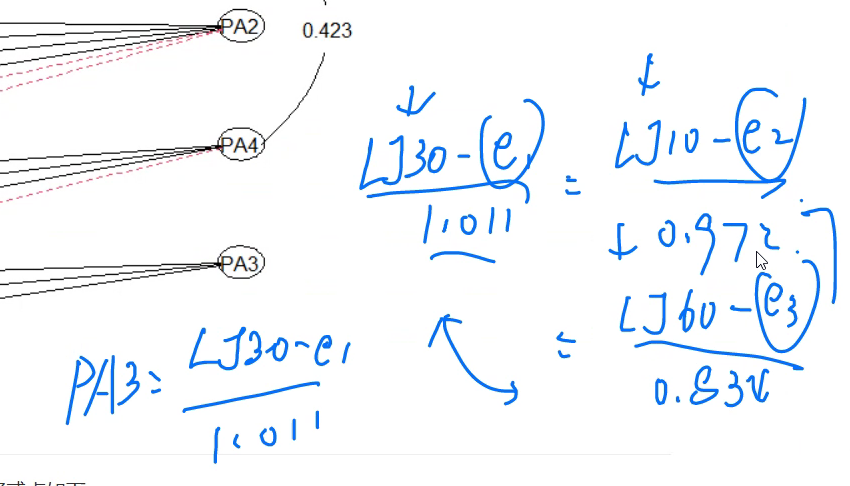 PA2
0.423
PA4
PA3
LJ30-e1
1.011
=
LJ10-e2
0.972
=
LJ60-e3
PA3=
LJ30-e1
1.011